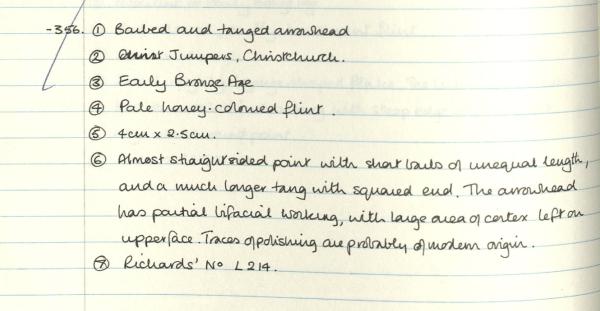 -356. ① Barbed and tanged arrowhead
② Christ Jumpers, Christchurch.
③ Early Bronze Age
④ Pale honey-coloured flint.
⑤ 4cm x 2.5cm.
⑥ Almost straight sided point with short barbs of unequal length,
and a much longer tang with squared end. The arrowhead
has partial bifacial working, with large area of cortex left on
upper face. Traces of polishing are probably of modern origin.
⑦ Richards' No L214.